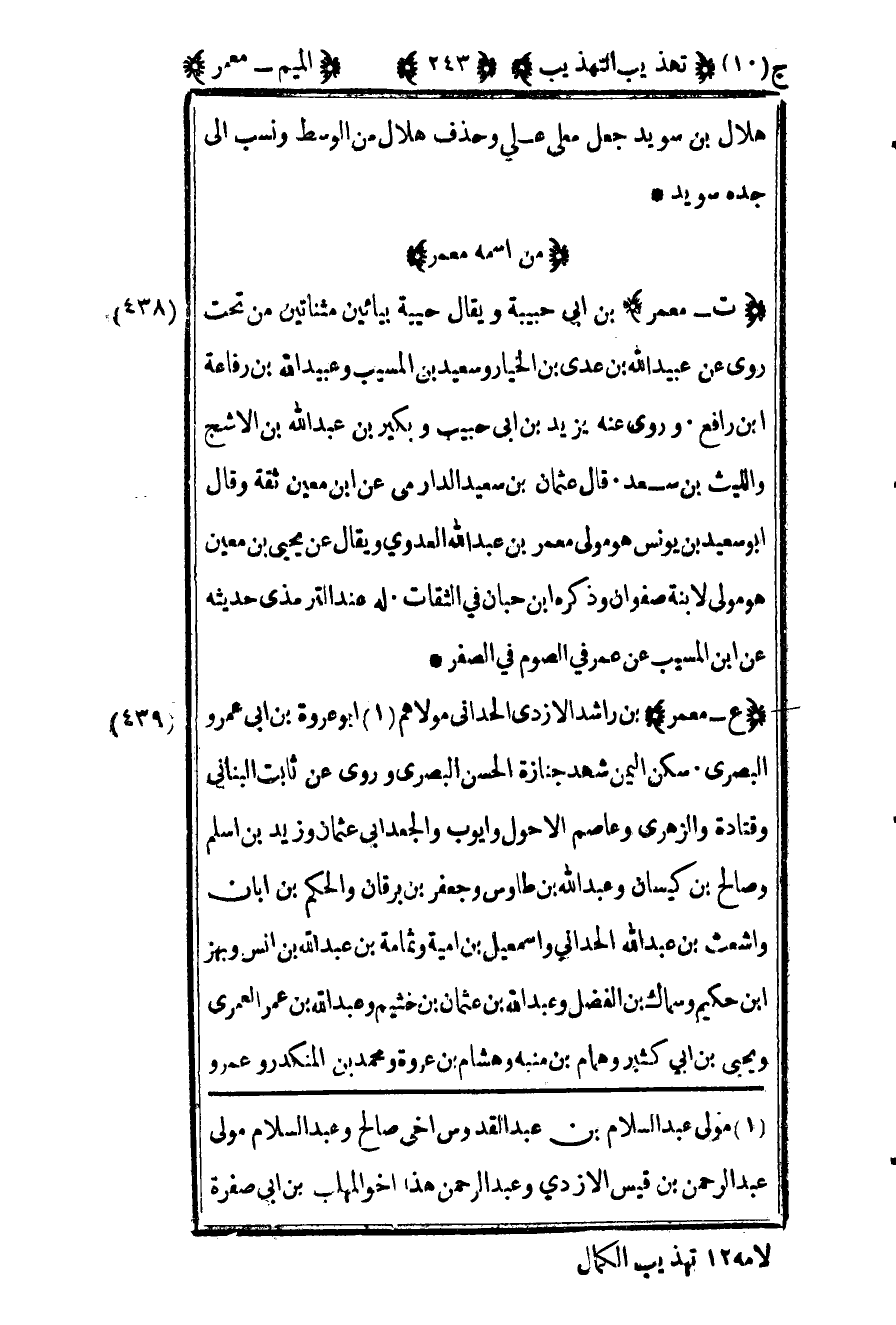 ج (١٠) ﴿ تهذيب التهذيب ﴾ ﴿ ٢٤٣ ﴾ ﴿ الميم ــ معمر ﴾
هلال بن سويد جعل معلى عــلي وحذف هلال من الوسط ونسب الى
جده سويد *
﴿ من اسمه معمر ﴾
﴿ ت ــ معمر ﴾ بن ابي حبيبة ويقال حيية بيائين مثناتين من تحت (٤٣٨)
روى عن عبيدالله بن عدى بن الخيار وسعيد بن المسيب وعبيدالله بن رفاعة
ابن رافع · وروى عنه يزيد بن ابى حبيب وبكير بن عبدالله بن الاشج
والليث بن ســعد · قال عثمان بن سعيد الدارمى عن ابن معين ثقة وقال
ابو سعيد بن يونس هو مولى معمر بن عبدالله العدوي ويقال عن يحيى بن معين
هو مولى لابنة صفوان وذكره ابن حبان في الثقات · له عند الترمذى حديثه
عن ابن المسيب عن عمر في الصوم في الصفر *
﴿ ع ــ معمر ﴾ بن راشد الازدى الحدانى مولاهم (١) ابو عروة بن ابى عمرو (٤٣٩)
البصرى · سكن اليمن شهد جنازة الحسن البصرى وروى عن ثابت البناني
وقتادة والزهرى وعاصم الاحول وايوب والجعد ابى عثمان وزيد بن اسلم
وصالح بن كيسان وعبدالله بن طاوس وجعفر بن برقان والحكم بن ابان
واشعث بن عبدالله الحدانى واسمعيل بن امية وثمامة بن عبدالله بن انس وبهز
ابن حكيم وسماك بن الفضل وعبدالله بن عثمان بن خثيم وعبدالله بن عمر العمرى
ويحيى بن ابي كثير وهمام بن منبه وهشام بن عروة ومحمد بن المنكدر وعمرو
(١) مولى عبدالسلام بن عبدالقدوس اخى صالح وعبدالسلام مولى
عبدالرحمن بن قيس الازدي وعبدالرحمن هذا اخو المهلب بن ابي صفرة
لامه ١٢ تهذيب الكمال